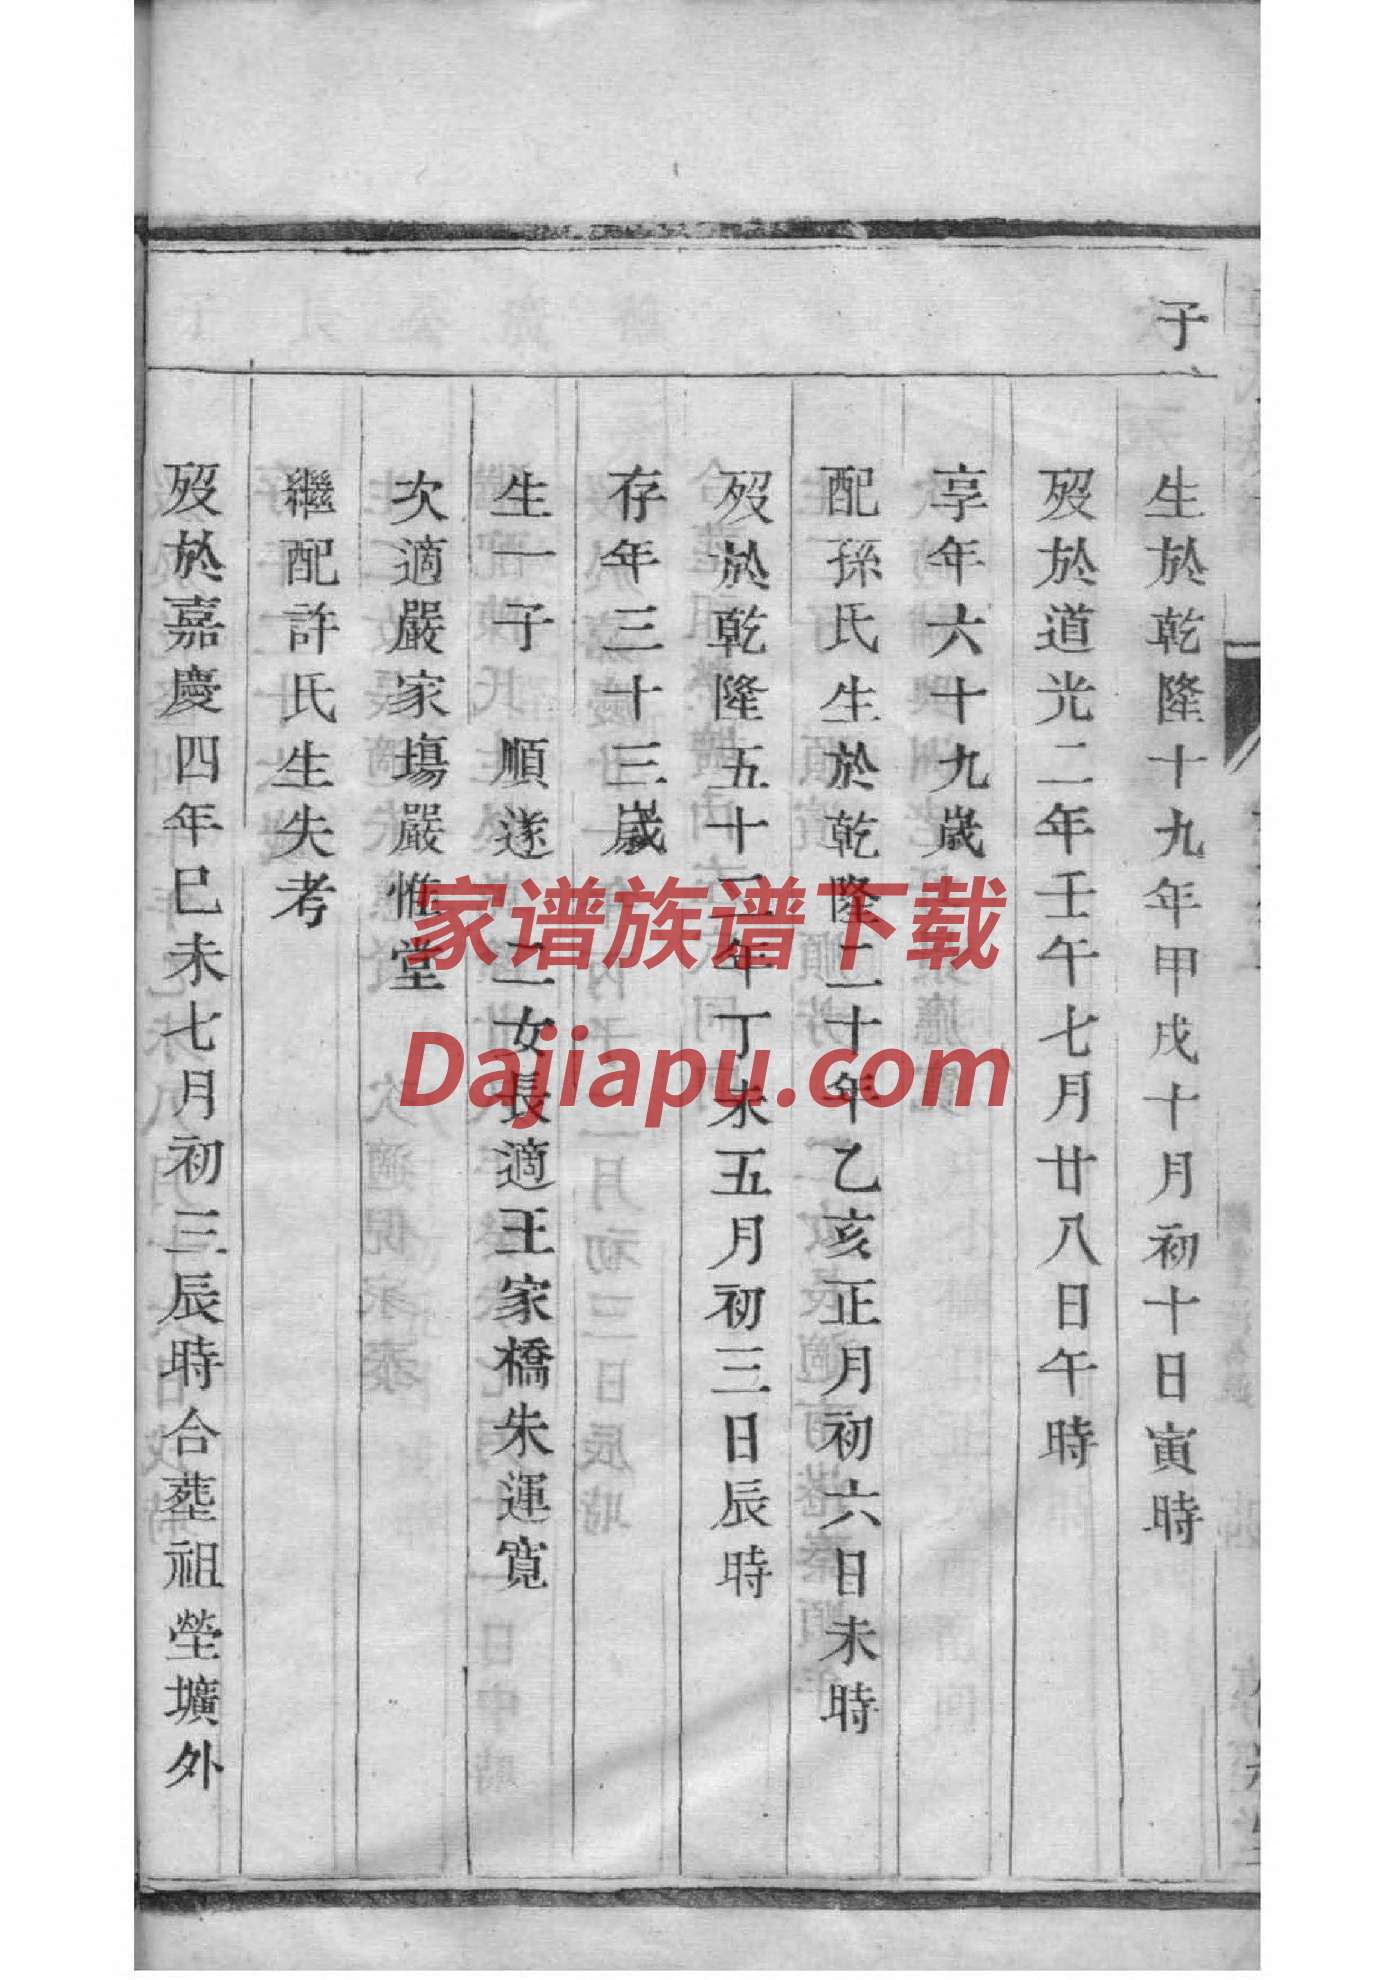 子
生於乾隆十九年甲戌十月初十日寅時
歿於道光二年壬午七月廿八日午時
享年六十九歲
配孫氏生於乾隆二十年乙亥正月初六日未時
歿於乾隆五十二年丁未五月初三日辰時
存年三十三歲
生一子 順遂 二女長適王家橋朱運寬
次適嚴家塲嚴惟堂
繼配許氏生失考
歿於嘉慶四年巳未七月初三辰時合葬祖塋壙外
家谱族谱下载
Dajiapu.com